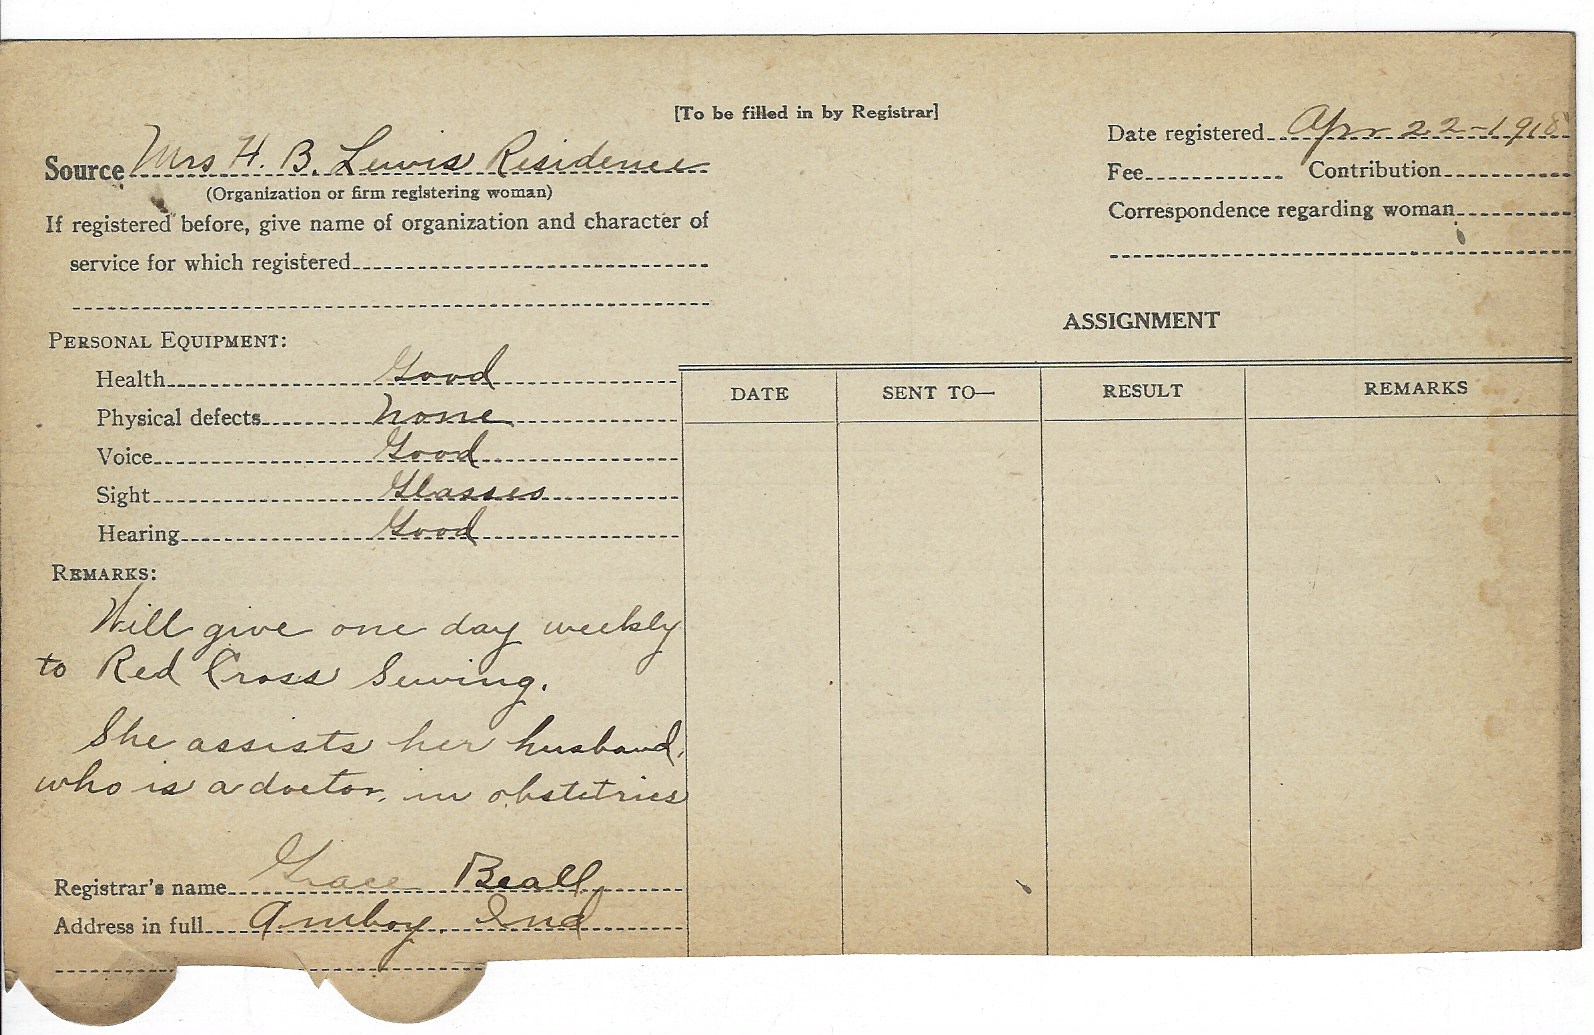 [To be filled in by Registrar]
Source Mrs H. B. Lewis Residence
(Organization or firm registering woman)
If registered before, give name of organization and character of
service for which registered
Date registered Apr 22-1918
Fee Contribution
Correspondence regarding woman
PERSONAL EQUIPMENT:
Health Good
Physical defects none
Voice Good
Sight Glasses
Hearing Good
REMARKS:
Will give one day weekly
to Red Cross Sewing.
She assists her husband,
who is a doctor, in obstetrics
Registrar's name Grace Beall
Address in full Amboy, Ind
ASSIGNMENT
DATE SENT TO— RESULT REMARKS